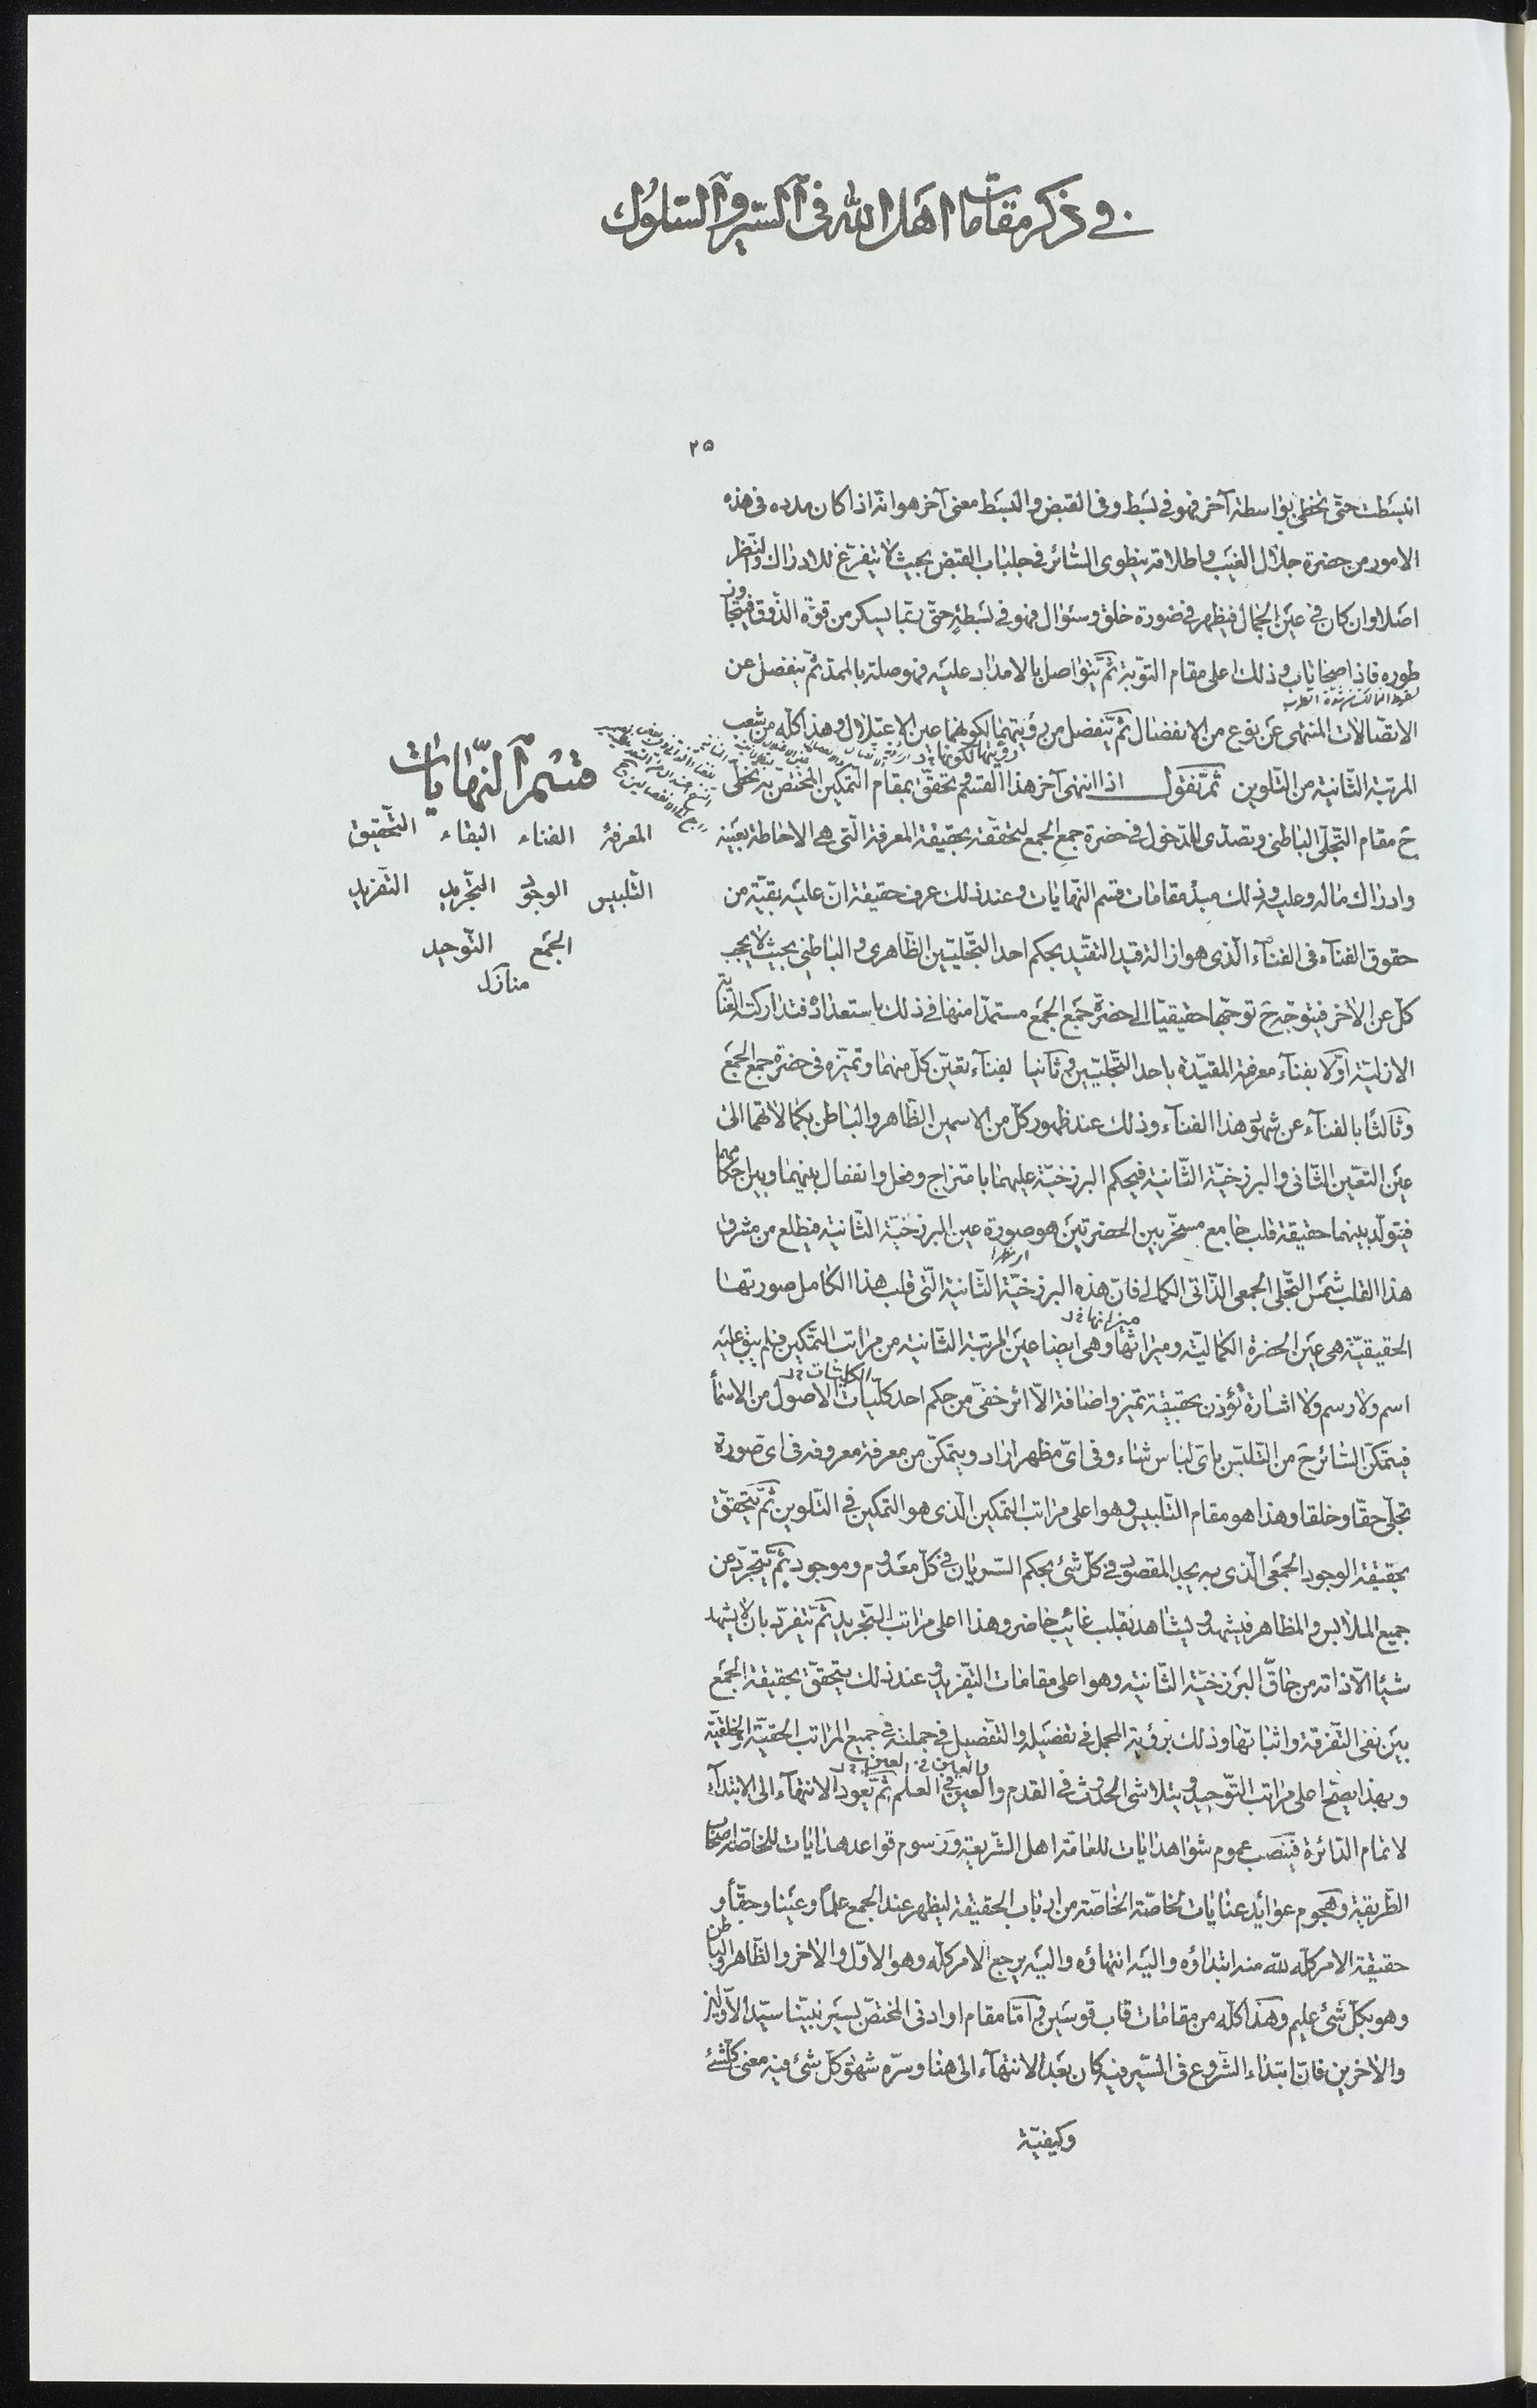 في ذكر مقامات اهل الله فى السير والسلوك
۲۵
انبسطت حتّى تحظى بواسطة آخر فهو فى بسط وفى القبض والبسط معنى آخر هو انّه اذا كان مدده فى هذه
الامور من حضرة جلال الغيب واطلاقه ينطوى السّائر فى جلباب القبض بحيث لا يتفرّغ للادراك والنّظر
اصلا وان كان فى عين الجمال فيظهر فى صورة خلق وسئوال فهو فى بسطه حتّى ربّما يسكر من قوّة الذّوق فيتجاوز
طوره فاذا صحا تاب وذلك اعلى مقام التّوبة ثمّ يتواصل بالامداد عليه فهو صلة بالممدّ ثمّ ينفصل عن
الاتّصالات المنتهى عن نوع من الانفصال ثمّ ينفصل من رؤيتهما لكونهما عين الاعتلال وهذا كلّه من شعب
المرتبة الثّانية من التّلوين ثمّ نقول اذا انتهى آخر هذا القسم وتحقّق بمقام التّمكين المختصّ به تخطّى
قسم النّهايات
ح مقام التّجلّى الباطنى وتصدّى للدّخول فى حضرة جمع الجمع لتحقّقه بحقيقة المعرفة الّتى هى الاحاطة بعينه
المعرفة الفناء البقاء التّحقيق
وادراك ماله وعليه وذلك مبدأ مقامات قسم النّهايات وعند ذلك عرف حقيقة انّ عليه بقيّة من
التّلبيس الوجود التّجريد التّفريد
حقوق الفنآء فى الفنآء الّذى هو ازالة قيد التقيّد بحكم احد التّجلّيين الظّاهرى والباطنى بحيث لا يحجب
الجمع التّوحيد
منازل
كلّ عن الاخر فيتوجّه ح توجّها حقيقيّا الى حضرة جمع الجمع مستمدّا منها فى ذلك باستعداده فتداركته العناية
الازليّة اوّلا بفنآء معرفة المقيّدة باحد التّجلّيين وثانيا بفنآء تعيّن كلّ منهما وتميّزه فى حضرة جمع الجمع
وثالثا بالفنآء عن شهود هذا الفنآء وذلك عند ظهور كلّ من الاسمين الظّاهر والباطن بكمالاتهما الى
عين التعّين الثّانى والبرزخيّة الثّانية فيحكم البرزخيّة عليهما بامتزاج وفعل وانفعال بينهما وبين احكامهما
فيتولّد بينهما حقيقة قلب جامع مسخّر بين الحضرتين هو صورة عين البرزخيّة الثّانية فيطلع من مشرق
هذا القلب شمس التّجلّى الجمعى الذّاتى الكمالى فانّ هذه البرزخيّة الثّانية الّتى قلب هذا الكامل صورتها
الحقيقيّة هى عين الحضرة الكماليّة وميراثها وهى ايضا عين المرتبة الثّانية من مراتب التّمكين فلم يبق عليه
اسم ولا رسم ولا اشارة تؤذن بحقيقة تميّز واضافة الّا اثر خفىّ من حكم احد كلّيات الاصول من الاسمأ
فيتمكّن السّائر ح من التّلبّس باىّ لباس شاء وفى اىّ مظهر اراد ويتمكّن من معرفة معروفه فى اى صورة
تجلّى حقّا وخلقا وهذا هو مقام التّلبيس وهو اعلى مراتب التمكين الّذى هو التمكين فى التّلوين ثمّ يتحقّق
بحقيقة الوجود الجمعى الّذى به يجد المقصود فى كلّ شئ بحكم السّريان فى كلّ معدوم وموجود ثمّ يتجرّد عن
جميع الملابس والمظاهر فيشهد ويشاهد بقلب غائب حاضر وهذا اعلى مراتب التّجريد ثمّ يتفرّد بان لا يشهد
شيئا الّا ذاته من حاقّ البرزخيّة الثّانية وهو اعلى مقامات التّفريد وعند ذلك يتحقّق بحقيقة الجمع
بين نفى التّفرقة واثباتها وذلك برؤية المجمل فى تفصيله والتّفصيل فى جملته فى جميع المراتب الحقّيّة والخلقيّة
وبهذا يصحّ اعلى مراتب التّوحيد ويتلاشى الحدوث فى القدم والعين فى العلم ثمّ يعود الانتهآء الى الابتدآء
لاتمام الدّائرة فينصب عموم شواهد ايات للعامّة اهل الشّريعة ورسوم قواعد هدايات للخاصّة اصحاب
الطّريقة وهجوم عوائد عنايات لخاصّة الخاصّة من ارباب الحقيقة ليظهر عند الجمع علماً وعينا وحقّاً و
حقيقة الامر كلّه للّه منه ابتداؤه واليه انتهاؤه واليه يرجع الامر كلّه وهو الاوّل والاخر والظّاهر والباطن
وهو بكلّ شئ عليم وهذا كلّه من مقامات قاب قوسين وامّا مقام او ادنى المختصّ بسير نبيّنا سيّد الاوّلين
والاخرين فانّ ابتداء الشّروع فى السّير فيه كان بعد الانتهآء الى هنا وسرّه شهود كلّ شئ فيه معنى كلّ شئ
وكيفيّة